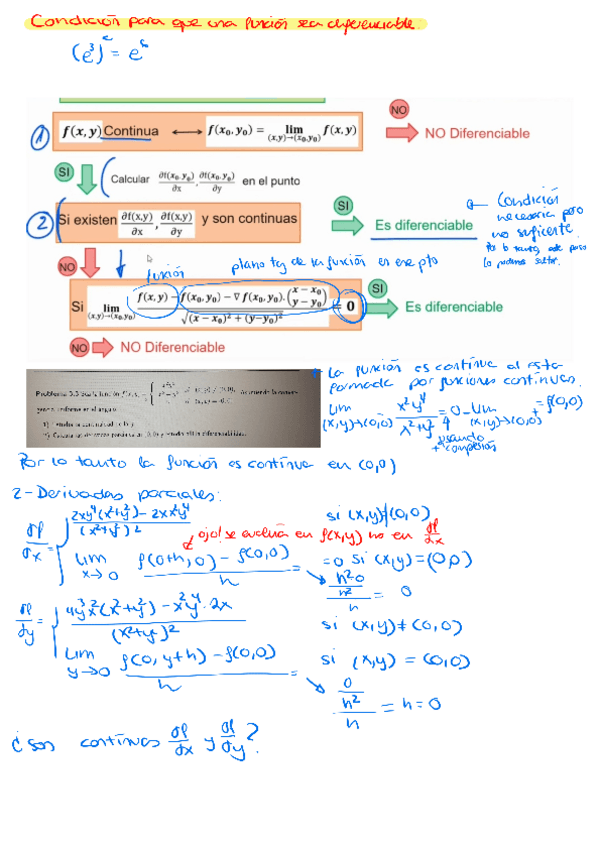 Condición para que una función sea diferenciable
(e³)^c = e^6
① f(x, y) Continua ⟷ f(x₀, y₀) = lim (x,y)→(x₀,y₀) f(x, y)
NO
NO Diferenciable
SI
Calcular ∂f(x₀,y₀)/∂x , ∂f(x₀,y₀)/∂y en el punto
② Si existen ∂f(x,y)/∂x , ∂f(x,y)/∂y y son continuas
SI
Es diferenciable
Condición
necesaria pero
no suficente.
Por lo tanto, este paso
lo podemos saltar.
NO
función
plano tg de la función en ese pto
Si lim (x,y)→(x₀,y₀) (f(x, y) − f(x₀, y₀) − ∇f(x₀, y₀).(x − x₀ / y − y₀)) / √((x − x₀)² + (y−y₀)²) = 0
SI
Es diferenciable
NO
NO Diferenciable
Problema 3.3 Sea la función f(x, y) =
La función es continua al esta
formada por funciones continuas.
lim (x,y)→(0,0) x²y⁴/(x²+y²) = 0 = lim (x,y)→(0,0) = f(0,0)
usando
Por lo tanto la función es continua en (0,0)
2-Derivadas parciales:
∂f/∂x = (2xy⁴(x²+y²) − 2x x²y⁴)/(x²+y²)² si (x,y)≠(0,0)
ojo! se evalúa en f(x,y) no en ∂f/∂x
lim x→0 (f(0+h,0) − f(0,0))/h = 0 si (x,y)=(0,0)
(h²·0/h²)/h = 0
∂f/∂y = (4y³x²(x²+y²) − x²y⁴·2x)/(x²+y²)² si (x,y)≠(0,0)
lim y→0 (f(0,y+h) − f(0,0))/h = si (x,y) = (0,0)
(0/h²)/h = h=0
¿son continuas ∂f/∂x y ∂f/∂y?